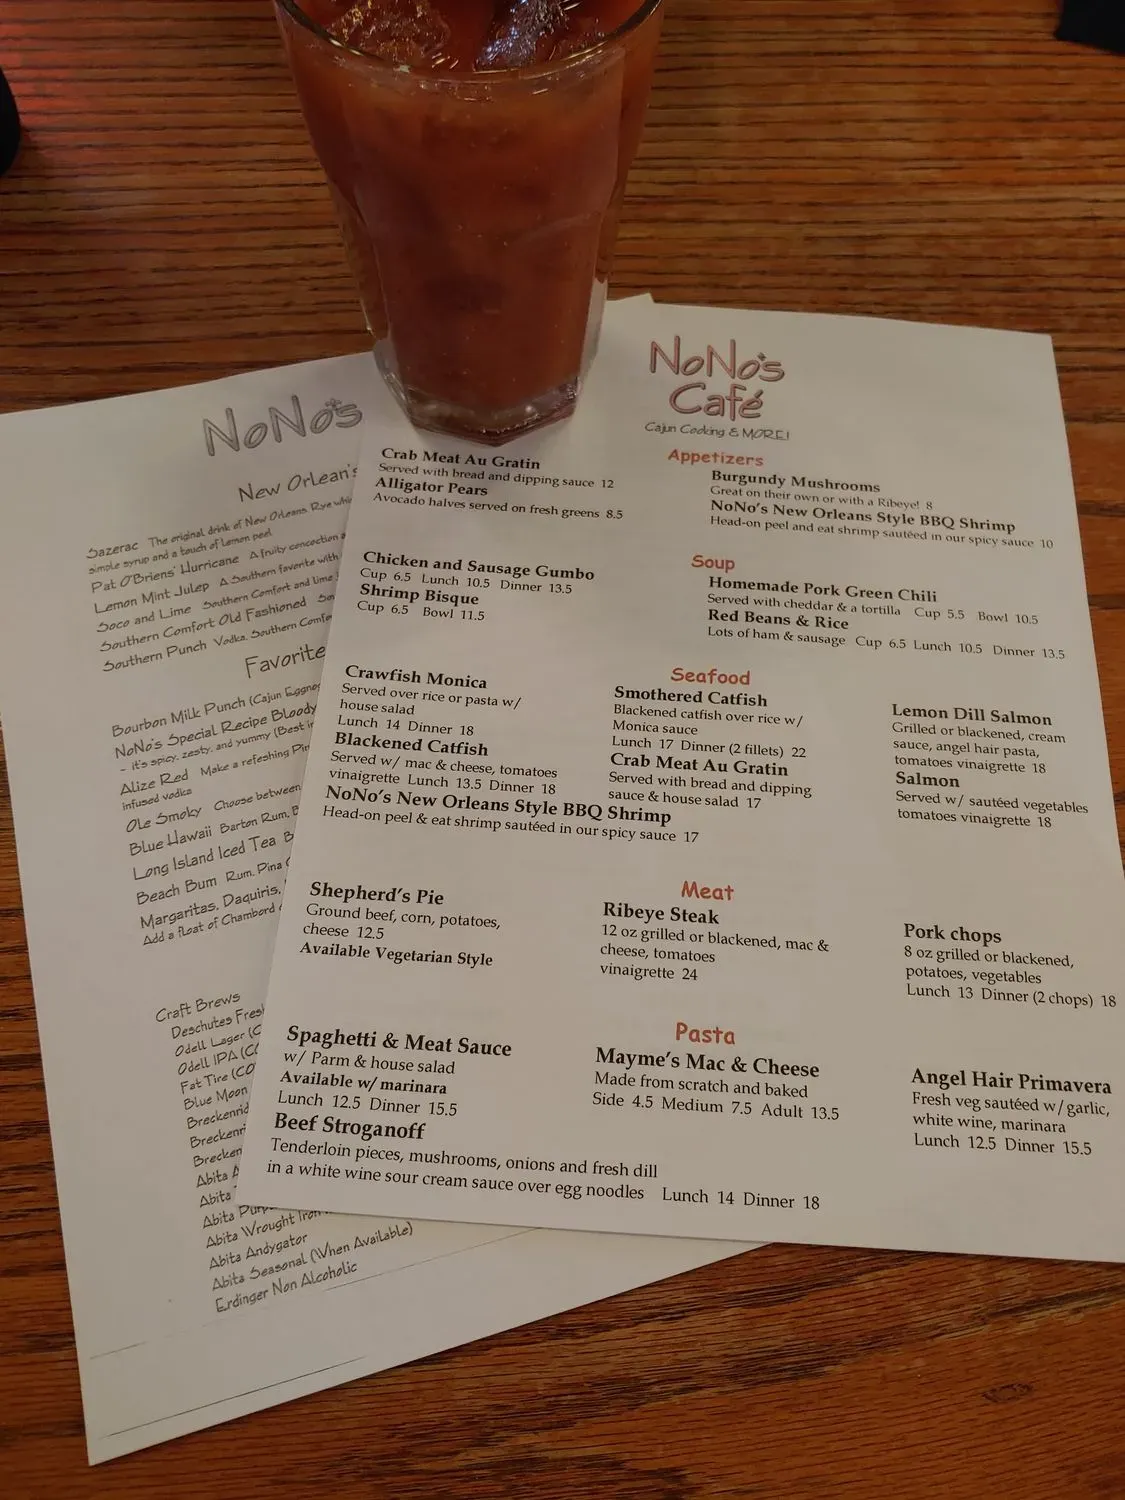 NoNo's
Café
Cajun Cooking & MORE!
Appetizers
Crab Meat Au Gratin
Served with bread and dipping sauce 12
Alligator Pears
Avocado halves served on fresh greens 8.5
Burgundy Mushrooms
Great on their own or with a Ribeye! 8
NoNo's New Orleans Style BBQ Shrimp
Head-on peel and eat shrimp sautéed in our spicy sauce 10
Soup
Chicken and Sausage Gumbo
Cup 6.5 Lunch 10.5 Dinner 13.5
Shrimp Bisque
Cup 6.5 Bowl 11.5
Homemade Pork Green Chili
Served with cheddar & a tortilla Cup 5.5 Bowl 10.5
Red Beans & Rice
Lots of ham & sausage Cup 6.5 Lunch 10.5 Dinner 13.5
Seafood
Crawfish Monica
Served over rice or pasta w/
house salad
Lunch 14 Dinner 18
Blackened Catfish
Served w/ mac & cheese, tomatoes
vinaigrette Lunch 13.5 Dinner 18
NoNo's New Orleans Style BBQ Shrimp
Head-on peel & eat shrimp sautéed in our spicy sauce 17
Smothered Catfish
Blackened catfish over rice w/
Monica sauce
Lunch 17 Dinner (2 fillets) 22
Crab Meat Au Gratin
Served with bread and dipping
sauce & house salad 17
Lemon Dill Salmon
Grilled or blackened, cream
sauce, angel hair pasta,
tomatoes vinaigrette 18
Salmon
Served w/ sautéed vegetables
tomatoes vinaigrette 18
Meat
Shepherd's Pie
Ground beef, corn, potatoes,
cheese 12.5
Available Vegetarian Style
Ribeye Steak
12 oz grilled or blackened, mac &
cheese, tomatoes
vinaigrette 24
Pork chops
8 oz grilled or blackened,
potatoes, vegetables
Lunch 13 Dinner (2 chops) 18
Pasta
Spaghetti & Meat Sauce
w/ Parm & house salad
Available w/ marinara
Lunch 12.5 Dinner 15.5
Beef Stroganoff
Tenderloin pieces, mushrooms, onions and fresh dill
in a white wine sour cream sauce over egg noodles Lunch 14 Dinner 18
Mayme's Mac & Cheese
Made from scratch and baked
Side 4.5 Medium 7.5 Adult 13.5
Angel Hair Primavera
Fresh veg sautéed w/ garlic,
white wine, marinara
Lunch 12.5 Dinner 15.5
NoNo's
New Orlean's
Sazerac The original drink of New Orleans. Rye
simple syrup and a touch of lemon peel
Pat O'Briens' Hurricane A fruity concoction
Lemon Mint Julep A Southern favorite with
Soco and Lime Southern Comfort and lime
Southern Comfort Old Fashioned
Southern Punch Vodka, Southern
Favorite
Bourbon Milk Punch (Cajun
NoNo's Special Recipe Bloody
- it's spicy, zesty, and yummy (Best
Alize Red Make a refeshing
infused vodka
Ole Smoky Choose between
Blue Hawaii Barton Rum,
Long Island Iced Tea
Beach Bum Rum, Pina
Margaritas, Daquiris,
Add a float of Chambord
Craft Brews
Deschutes
Odell Lager
Odell IPA
Fat Tire
Blue Moon
Abita
Abita
Abita
Abita Wrought Iron
Abita Andygator
Abita Seasonal (When Available)
Erdinger Non Alcoholic